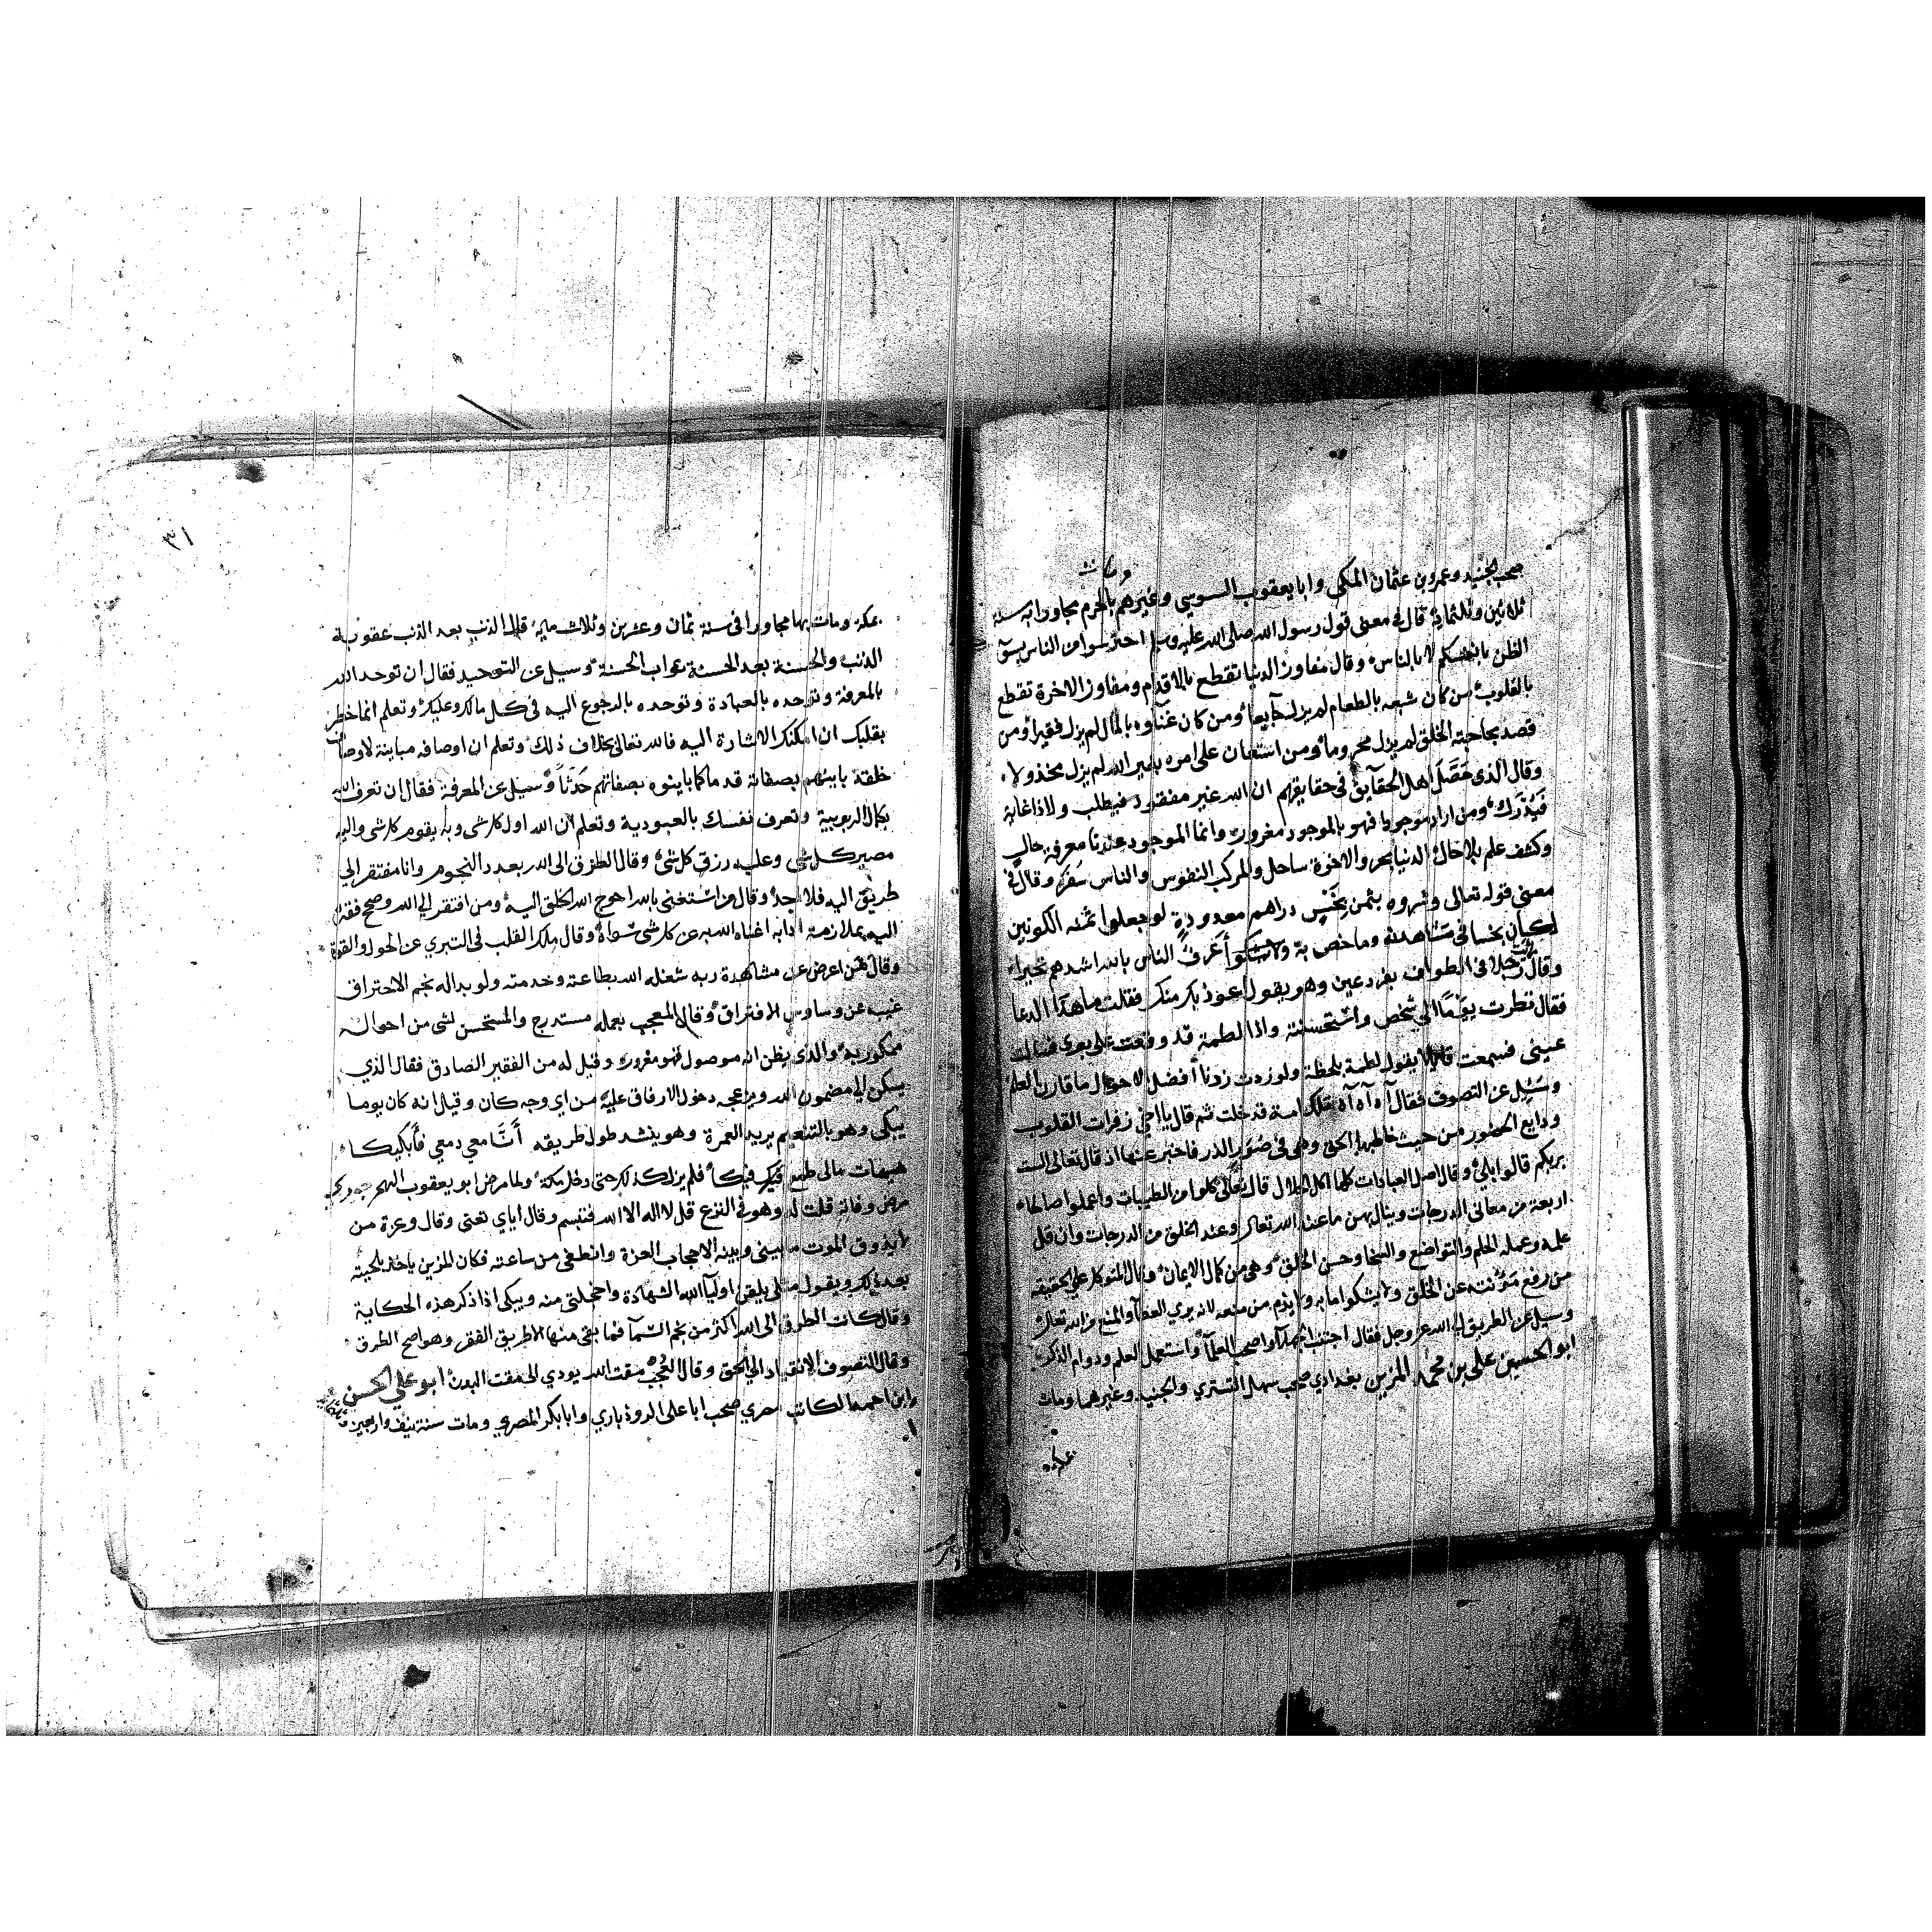 ومات
صحب الجنيد وعمرو بن عثمان المكي وابا يعقوب السوسي وغيرهم بالحرم مجاورا به سنة
ثلاثين وثلثماية قال في معنى قول رسول الله صلى الله عليه وسلم احترسوا من الناس بسوء
الظن بانفسكم لا بالناس وقال مفاوز الدنيا تقطع بالاقدام ومفاوز الاخرة تقطع
بالقلوب من كان شبعه بالطعام لم يزل جايعا ومن كان غناوه بالمال لم يزل فقيرا ومن
قصد بحاجته الخلق لم يزل محروما ومن استعان على امره بغير الله لم يزل مخذولا
وقال الذي حصل اهل الحقايق في حقايقهم ان الله غير مفقود فيطلب ولا ذا غاية
فيدرك ومن اراد موجودا فهو بالموجود مغرور وانما الموجود عندنا معرفة حال
وكشف علم بلا حال الدنيا بحر والاخرة ساحل والمركب التقوى والناس سفر وقال في
معنى قوله تعالى وشروه بثمن بخس دراهم معدودة لو جعلوا ثمنه الكونين
لكان بخسا في مشاهدته وما خص به اعرف الناس بالله اشدهم تحيرا
وقال رايت رجلا في الطواف بفرد عين وهو يقول اعوذ بك منك فقلت ما هذا الدعا
فقال نظرت يوما الى شخص واستحسنته واذا لطمة قد وقعت على بصري فسالت
عيني فسمعت قايلا يقول لطمة بلحظة ولو زدت زدنا افضل الاحوال ما قارن العلم
وسئل عن التصوف فقال آه آه آه تلك امة قد خلت ثم قال يا اخي زفرات القلوب
ودايع الحضور من حيث خاطبها الحق وهي في صور الذر فاخبر عنها اذ قال تعالى الست
بربكم قالوا بلى وقال اصل العبادات كلها اكل الحلال قال تعالى كلوا من الطيبات واعملوا صالحا
اربعة من معاني الدرجات وينال بهن ما عند الله تعالى وعند الخلق من الدرجات وان قل
علمه وعمله الحلم والتواضع والسخا وحسن الخلق وهي من كمال الايمان وقال المتوكل على الحقيقة
من رفع مونته عن الخلق ولا يشكوا ما به ولا يذم من منعه لانه يرى العطا والمنع من الله تعالى
وسيل عن الطريق الى الله عز وجل فقال اجتنب الجهلا واصحب العلما واستعمل العلم ودوام الذكر
ابو الحسين علي بن محمد المزين بغدادي صحب سهل التستري والجنيد وغيرهما ومات
٣١
بمكة ومات بها مجاورا في سنة ثمان وعشرين وثلاث ماية قال الذنب بعد الذنب عقوبة
الذنب والحسنة بعد الحسنة ثواب الحسنة وسيل عن التوحيد فقال ان توحد الله
بالمعرفة وتوحده بالعبادة وتوحده بالرجوع اليه في كل مالك وعليك وتعلم انما خطر
بقلبك ان امكنك الاشارة اليه فالله تعالى بخلاف ذلك وتعلم ان اوصافه مباينة لاوصاف
خلقه باينهم بصفاته قدما كما باينوه بصفاتهم حدثا وسيل عن المعرفة فقال ان تعرف الله
بكمال الربوبية وتعرف نفسك بالعبودية وتعلم ان الله اول كل شى وبه يقوم كل شى واليه
مصير كل شى وعليه رزق كل شى وقال الطرق الى الله بعدد النجوم وانا مفتقر الى
طريق اليه فلا اجد وقال من استغنى بالله احوج الله الخلق اليه ومن افتقر الى الله وصح فقره
اليه بملازمة ادابه اغناه الله به عن كل شى سواه وقال ملاك القلب في التبري عن الحول والقوة
وقال من اعرض عن مشاهدة ربه شغله الله بطاعته وخدمته ولو بدا له نجم الاحتراق
غيبه عن وساوس الافتراق وقال المعجب بعمله مستدرج والمستحسن لشى من احواله
ممكور به والذي يظن انه موصول فهو مغرور وقيل له من الفقير الصادق فقال الذي
يسكن الى مضمون الله ويزعجه دخول الارفاق عليه من اي وجه كان وقيل انه كان يوما
يبكي وهو بالتنعيم يريد العمرة وهو ينشد طول طريقه انا معي دمعي فابكيكا
هيهات مالى طمع فيكا فلم يزل كذلك حتى دخل مكة ولما مرض ابو يعقوب النهرجوري
مرض وفاته قلت له وهو في النزع قل لا اله الا الله فتبسم وقال اياي تعني وقال وعزة من
لا يذوق الموت ما بيني وبينه الا حجاب العزة وانطفى من ساعته فكان المزين ياخذ بلحيته
بعد ذلك ويقول مثلي يلقن اوليا الله الشهادة واخجلتي منه ويبكي اذا ذكر هذه الحكاية
وقال كانت الطرق الى الله اكثر من نجم السما فما بقي منها الا طريق الفقر وهو اصح الطرق
وقال التصوف الانقياد الى الحق وقال العجب مقت الله يودي الى مقت البدن ابو علي الحسن
ابن احمد الكاتب مصري صحب ابا علي الروذباري وابا بكر المصري ومات سنة نيف واربعين